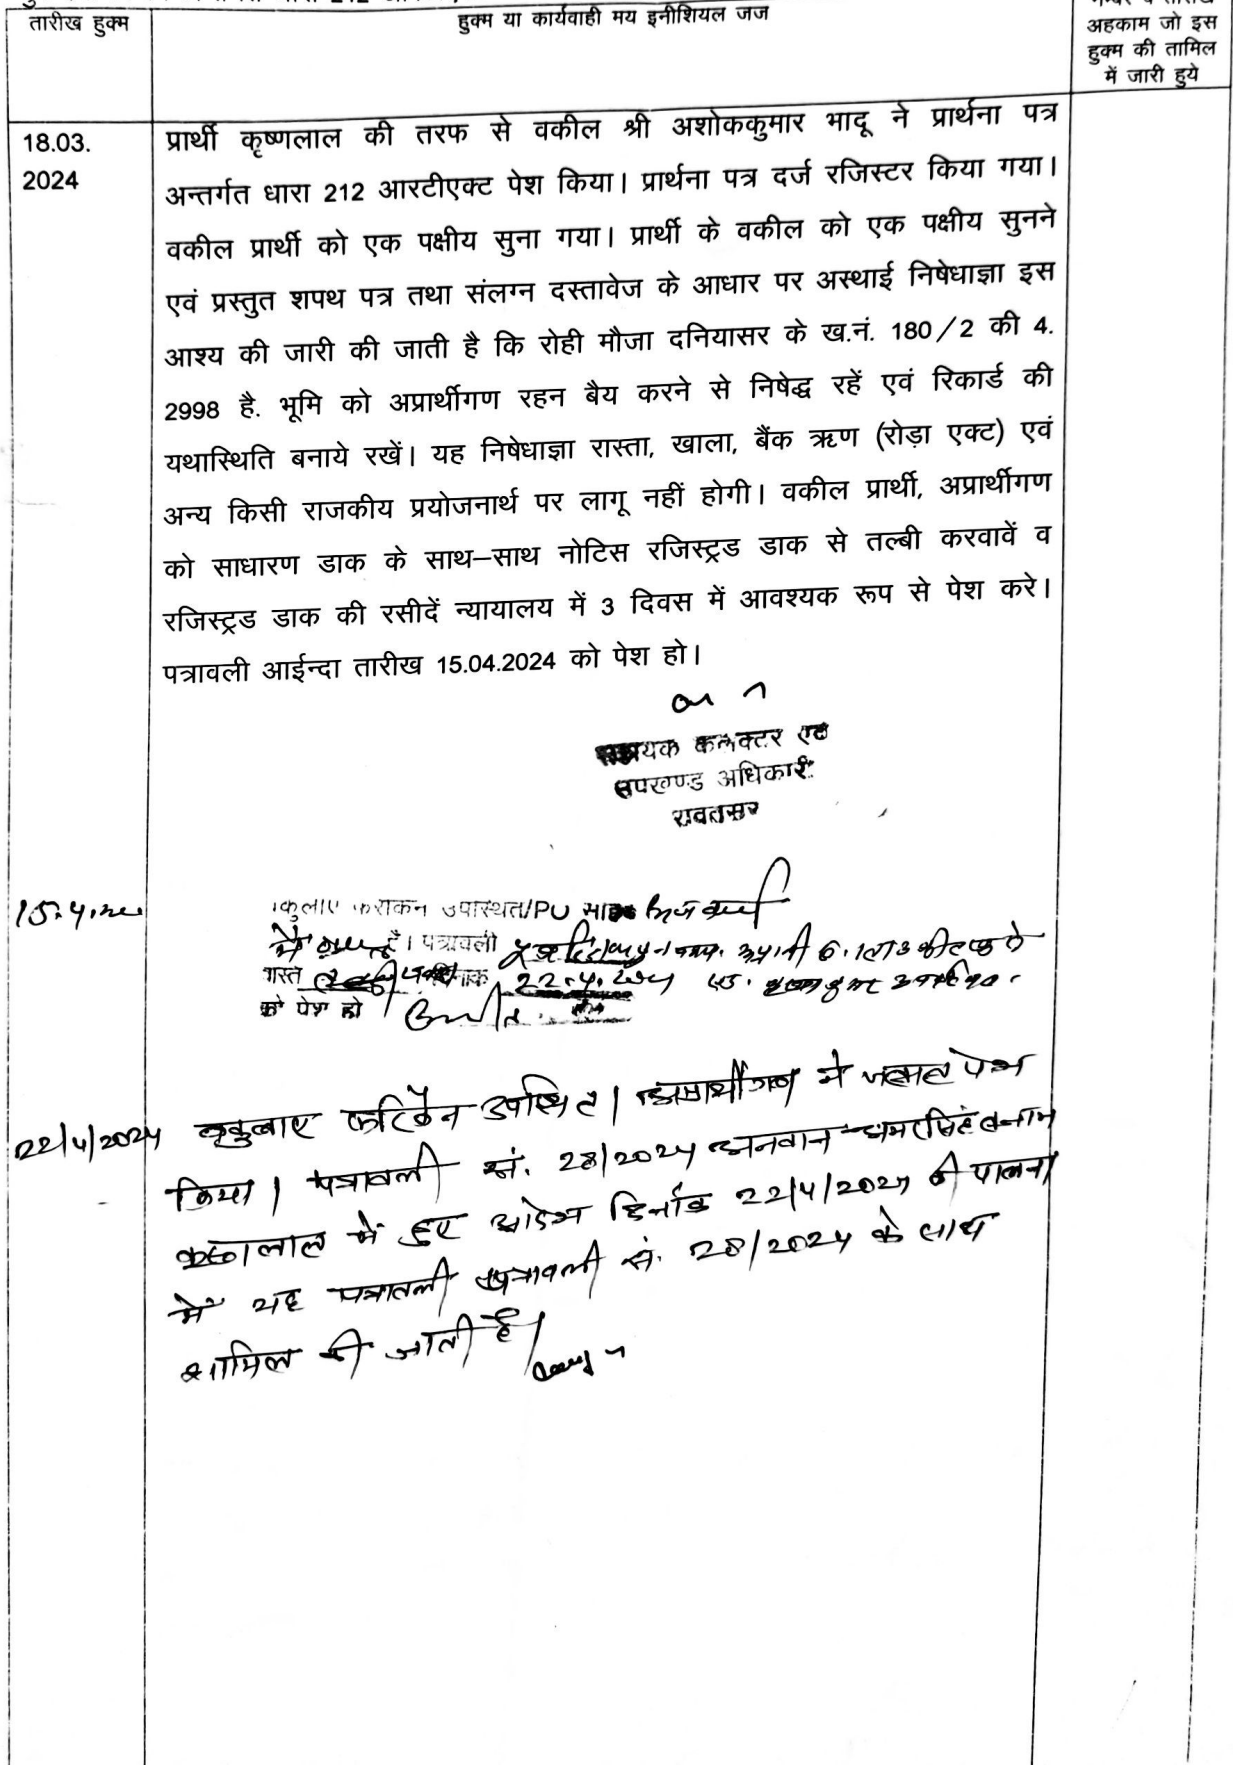 तारीख हुक्म
हुक्म या कार्यवाही मय इनीशियल जज
अहकाम जो इस
हुक्म की तामिल
में जारी हुये
18.03.
2024
प्रार्थी कृष्णलाल की तरफ से वकील श्री अशोककुमार भादू ने प्रार्थना पत्र
अन्तर्गत धारा 212 आरटीएक्ट पेश किया। प्रार्थना पत्र दर्ज रजिस्टर किया गया।
वकील प्रार्थी को एक पक्षीय सुना गया। प्रार्थी के वकील को एक पक्षीय सुनने
एवं प्रस्तुत शपथ पत्र तथा संलग्न दस्तावेज के आधार पर अस्थाई निषेधाज्ञा इस
आश्य की जारी की जाती है कि रोही मौजा दनियासर के ख.नं. 180/2 की 4.
2998 है. भूमि को अप्रार्थीगण रहन बैय करने से निषेद्ध रहें एवं रिकार्ड की
यथास्थिति बनाये रखें। यह निषेधाज्ञा रास्ता, खाला, बैंक ऋण (रोड़ा एक्ट) एवं
अन्य किसी राजकीय प्रयोजनार्थ पर लागू नहीं होगी। वकील प्रार्थी, अप्रार्थीगण
को साधारण डाक के साथ–साथ नोटिस रजिस्ट्रड डाक से तल्बी करवावें व
रजिस्ट्रड डाक की रसीदें न्यायालय में 3 दिवस में आवश्यक रूप से पेश करे।
पत्रावली आईन्दा तारीख 15.04.2024 को पेश हो।
सहायक कलक्टर एवं
उपखण्ड अधिकारी
रावतसर
उपस्थित/PO
है। पत्रावली
22.4.2024
को पेश हो
22/4/2024 वकुलाए फरिकेन उपस्थित। अप्रार्थीगण ने जबाब पेश
किया। पत्रावली सं. 28/2024 अनवान बनाम
कृष्णलाल में हुए आदेश दिनांक 22/4/2024 की पालना
में यह पत्रावली पत्रावली सं. 28/2024 के साथ
शामिल की जाती है।